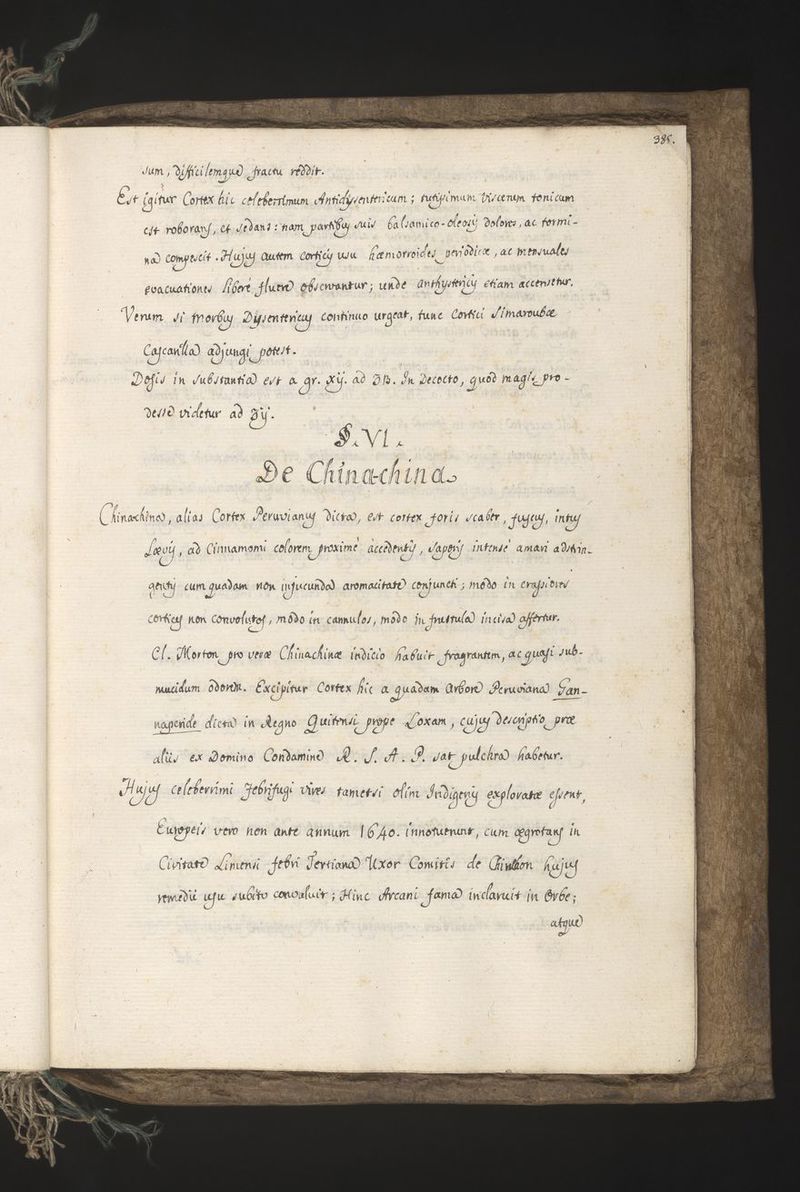 385.
sum, difficilemque fractu reddit.
Est igitur Cortex hic celeberrimum Antidyssentericum; tutissimum viscerum tonicum
est roborans, et sedans: nam partibus suis balsamico-oleosis dolores, ac tormi-
na compescit. Hujus autem corticis usu hæmorroides periodicæ, ac mensuales
evacuationes liberè fluere observantur; unde antihystericis etiam accensetur.
Verum si morbus Dyssentericus continuo urgeat, tunc Cortici Simaroubæ
Cascarilla adjungi potest.
Dosis in substantia est a gr. xij. ad ʒß. In Decocto, quod magis pro-
desse videtur ad ʒij.
§. VI.
De Chinachina
Chinachina, alias Cortex Peruvianus dicta, est cortex foris scaber, fuscus, intus
Lævis, ad Cinnamomi colorem proximè accedentis, saporis intensè amari adstrin-
gentis cum quadam non injucunda aromacitate conjuncti; modo in crassiores
cortices non convolutos, modo in cannulos, modo in frustula incisa affertur.
Cl. Morton pro veræ Chinachinæ indicio habuit fragrantem, ac quasi sub-
mucidum odorem. Excipitur Cortex hic a quadam Arbore Peruviana Gan-
naperide dicta in Regno Quitensi prope Loxam, cujus descriptio præ
aliis ex Domino Condamine R. S. A. P. sat pulchra habetur.
Hujus celeberrimi Febrifugi vires tametsi olim Indigenis exploratæ essent,
Europeis vero non ante annum 1640. innotuerunt, cum ægrotans in
Civitate Limensi febri Tertiana Uxor Comitis de Chinchon hujus
remedii usu subito convaluit; Hinc Arcani fama inclaruit in Orbe;
atque